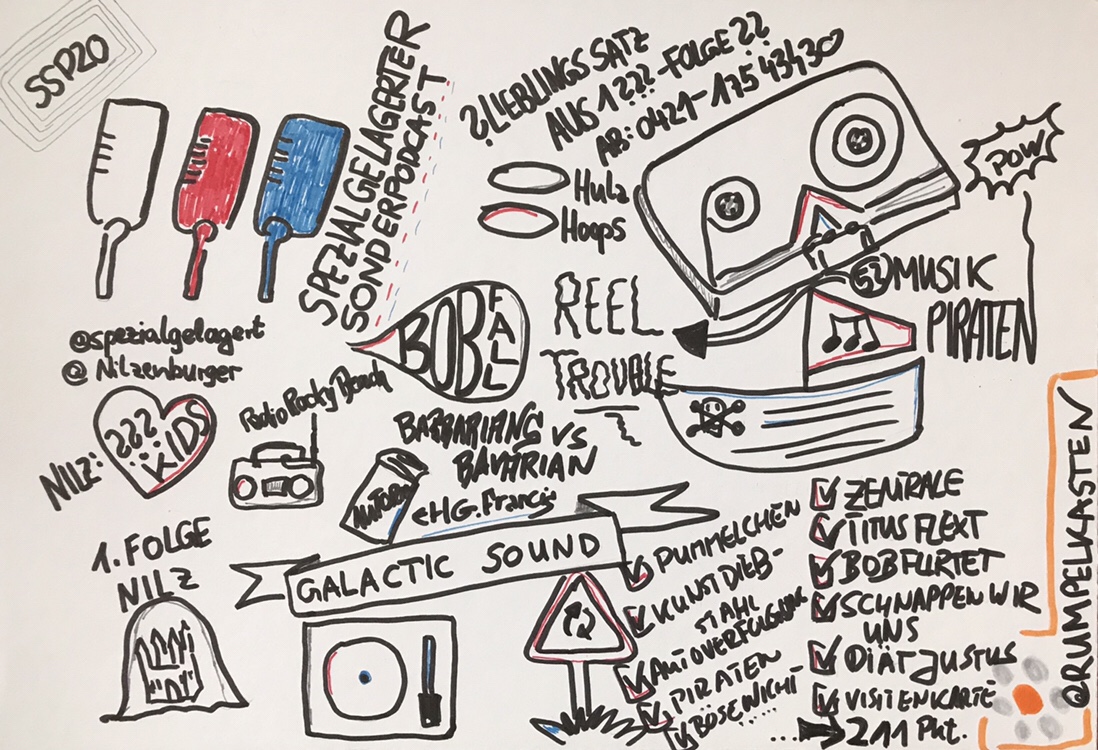 SSP20
SPEZIALGELAGERTER
SONDERPODCAST
@spezialgelagert
@Nilzenburger
?LIEBLINGSSATZ
AUS 1 ???-FOLGE??
AB: 0421-175 43430
Hula
Hoops
POW
52
MUSIK
PIRATEN
BOB
FALL
REEL
TROUBLE
NILZ:
???
KIDS
Radio Rocky Beach
BARBARIANS VS
BAVARIAN
HG. Francis
1. FOLGE
NILZ
GALACTIC SOUND
PUMMELCHEN
KUNSTDIEB-
STAHL
AUTOVERFOLGUNG
PIRATEN
BÖSEWICHT
.....
ZENTRALE
TITUS FLEXT
BOB FLIRTET
SCHNAPPEN WIR
UNS
DIÄT JUSTUS
VISITENKARTE
... 211 Pkt.
@RUMPELKASTEN